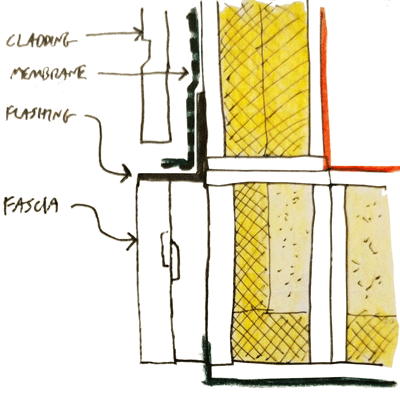 CLADDING
MEMBRANE
FLASHING
FASCIA